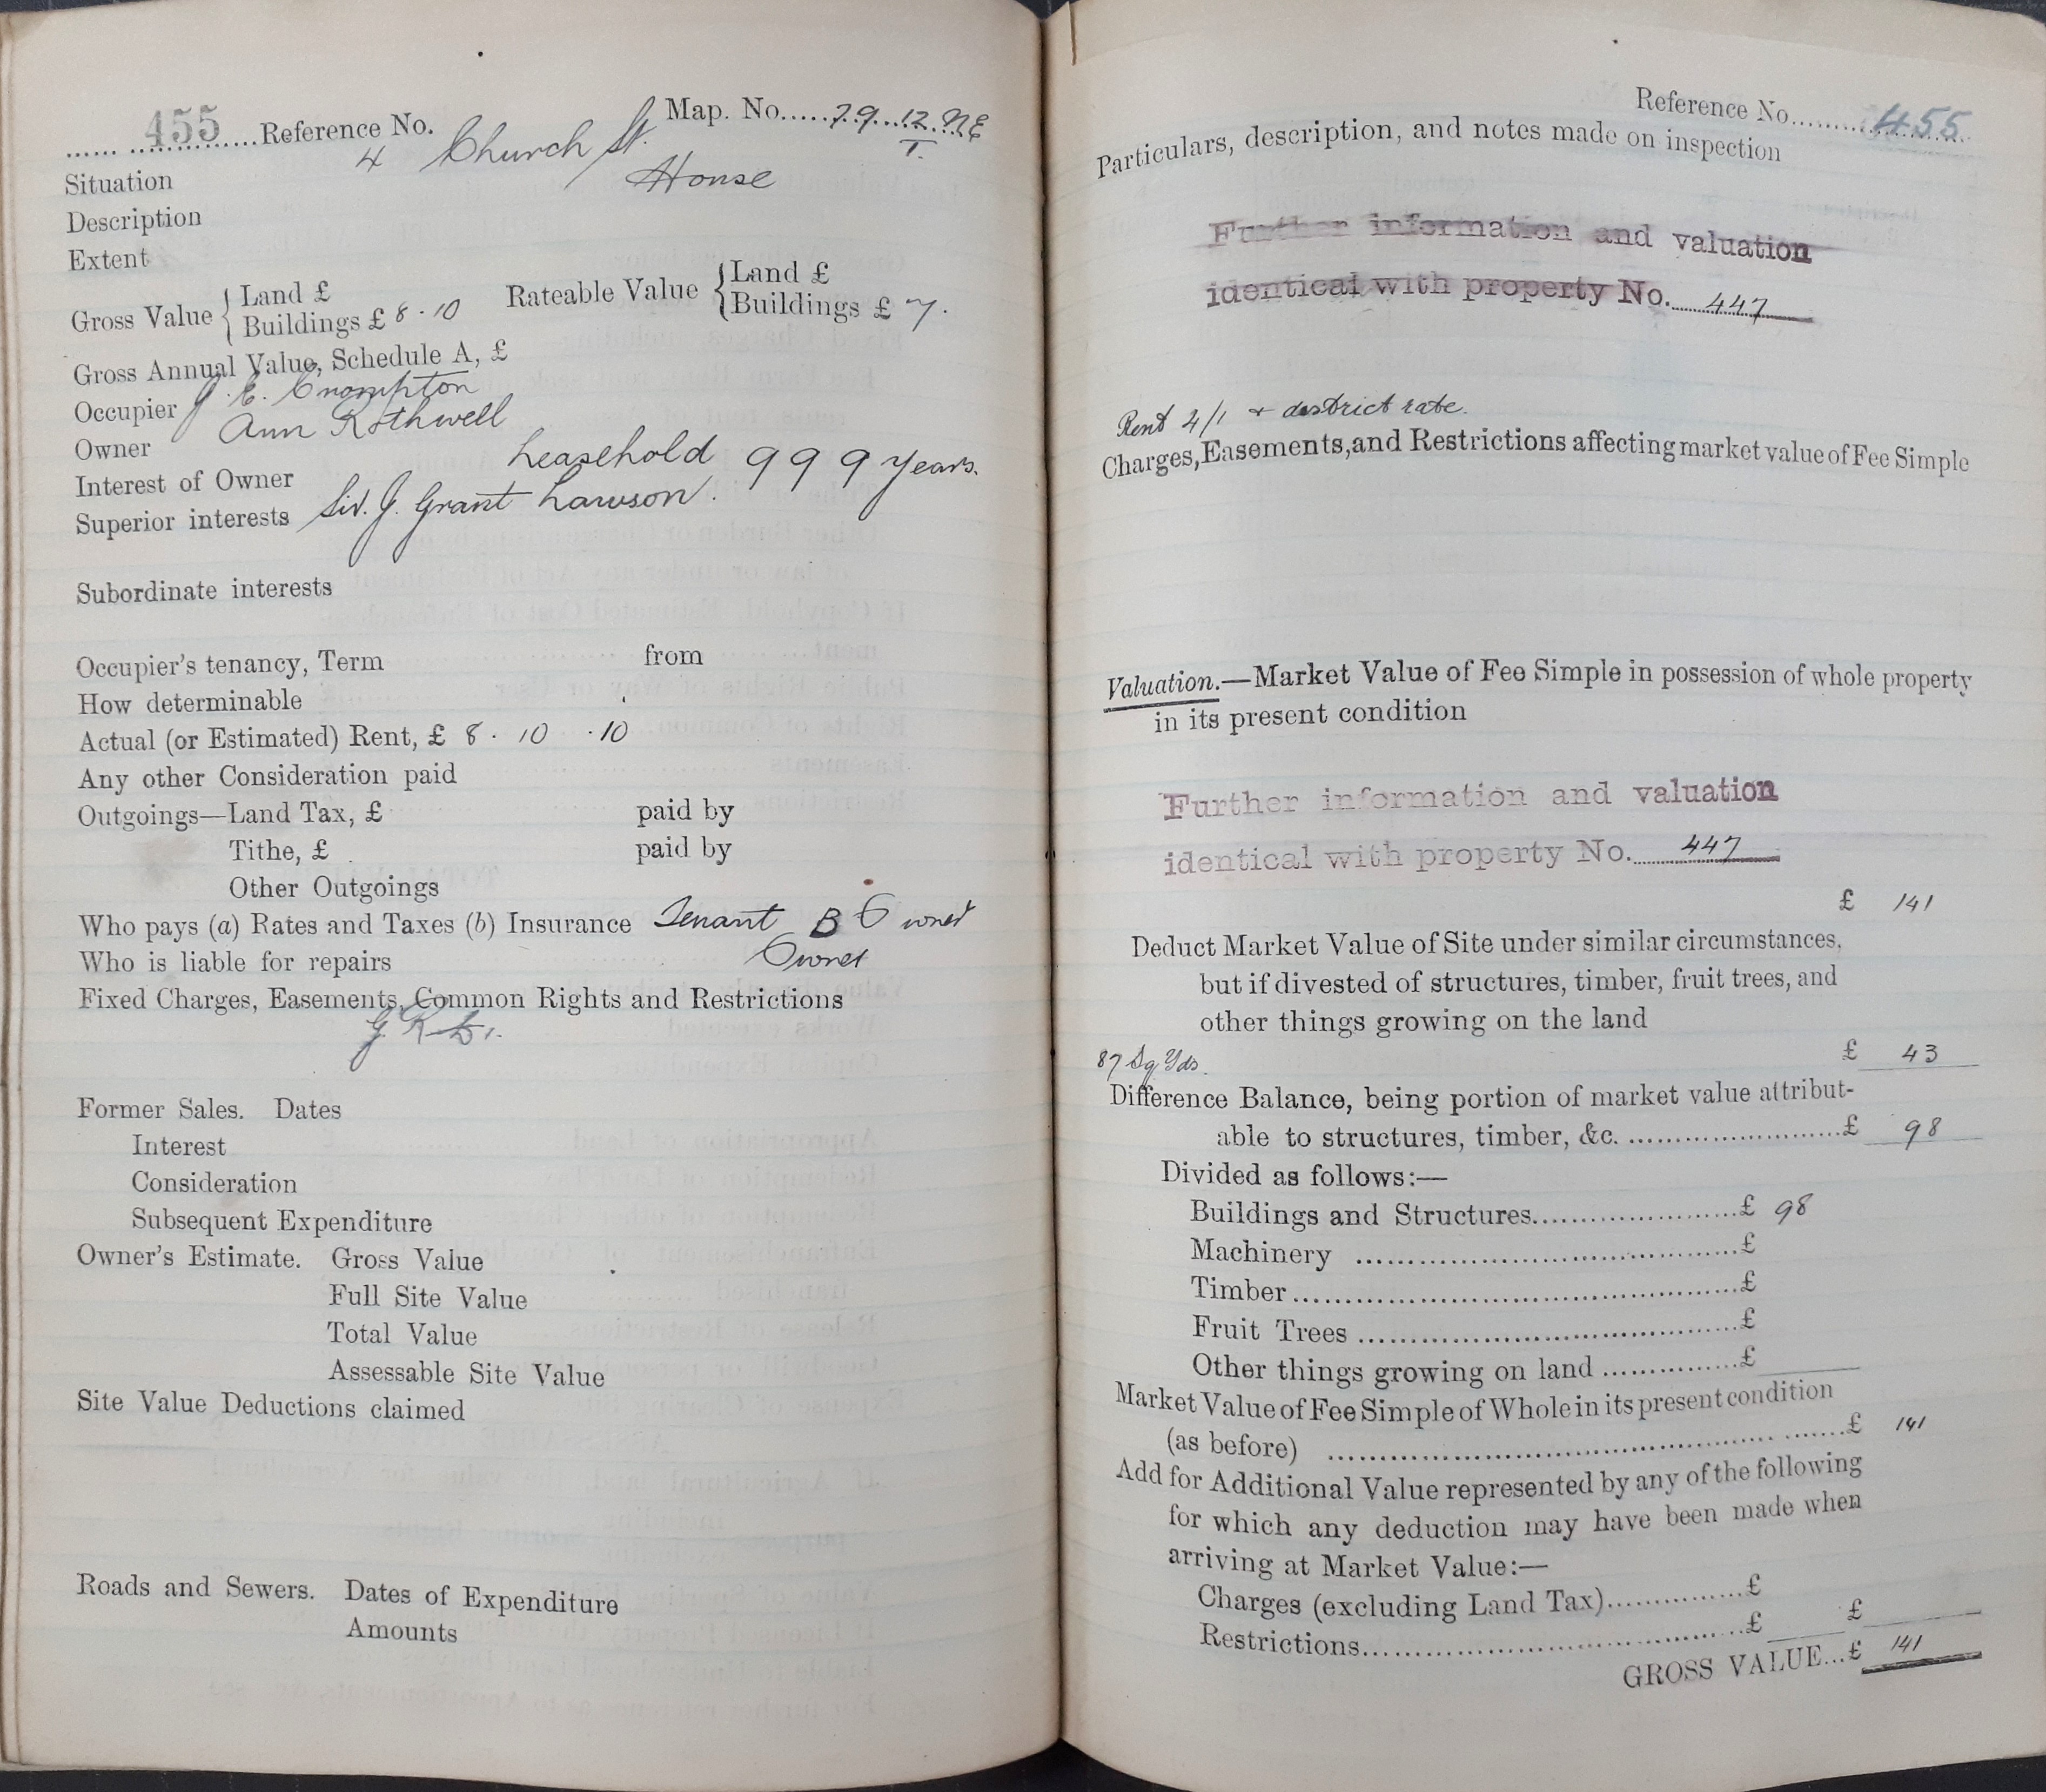 455 Reference No. Map. No. 79. 12. NE
T.
Situation 4 Church St.
Description House
Extent
Gross Value { Land £
Buildings £ 8 . 10
Rateable Value { Land £
Buildings £ 7.
Gross Annual Value, Schedule A, £
Occupier J. E. Crompton
Owner Ann Rothwell
Interest of Owner Leasehold 999 years.
Superior interests Sir. J. Grant Lawson.
Subordinate interests
Occupier's tenancy, Term from
How determinable
Actual (or Estimated) Rent, £ 8 . 10 . 10
Any other Consideration paid
Outgoings—Land Tax, £ paid by
Tithe, £ paid by
Other Outgoings
Who pays (a) Rates and Taxes (b) Insurance Tenant B Owner
Who is liable for repairs Owner
Fixed Charges, Easements, Common Rights and Restrictions
Former Sales. Dates
Interest
Consideration
Subsequent Expenditure
Owner's Estimate. Gross Value
Full Site Value
Total Value
Assessable Site Value
Site Value Deductions claimed
Roads and Sewers. Dates of Expenditure
Amounts
Reference No. 455
Particulars, description, and notes made on inspection
Further information and valuation
identical with property No. 447
Rent 4/1 + district rate.
Charges, Easements, and Restrictions affecting market value of Fee Simple
Valuation.—Market Value of Fee Simple in possession of whole property
in its present condition
Further information and valuation
identical with property No. 447
£ 141
Deduct Market Value of Site under similar circumstances,
but if divested of structures, timber, fruit trees, and
other things growing on the land
87 Sq Yds. £ 43
Difference Balance, being portion of market value attribut-
able to structures, timber, &c. £ 98
Divided as follows:—
Buildings and Structures £ 98
Machinery £
Timber £
Fruit Trees £
Other things growing on land £
Market Value of Fee Simple of Whole in its present condition
(as before) £ 141
Add for Additional Value represented by any of the following
for which any deduction may have been made when
arriving at Market Value:—
Charges (excluding Land Tax) £
Restrictions £ £
GROSS VALUE... £ 141